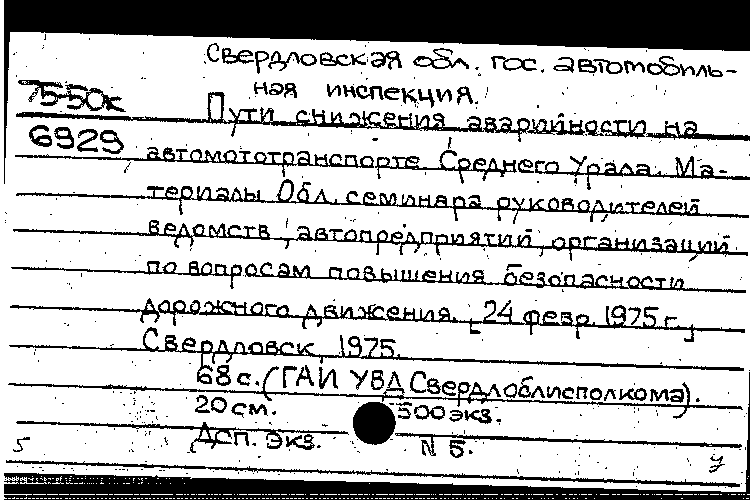 Свердловская обл. гос. автомобиль-
ная инспекция.
75-50к
6929
Пути снижения аварийности на
автомототранспорте Среднего Урала. Ма-
териалы Обл. семинара руководителей
ведомств, автопредприятий, организаций
по вопросам повышения безопасности
дорожного движения. [24 февр. 1975 г.]
Свердловск, 1975.
68 с. (ГАИ УВД Свердлоблисполкома).
20 см. 500 экз.
Дсп. Экз. N 5.
5 У